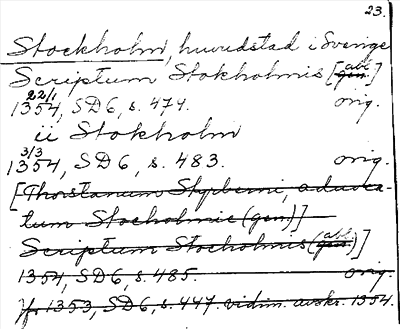 23.
Stockholm, huvudstad i Sverige
Scriptum Stokholmis [gen. abl.]
22/1
1354, SD 6, s. 474. orig.
ii Stokholm
3/3
1354, SD 6, s. 483. orig.
[Thorstanum Styrberni, aduoca-
tum Stocholmie (gen)]
Scriptum Stocholmis (gen. abl.)]
1354, SD 6, s. 485. orig.
1353, SD 6, s. 447. vidim. avskr. 1354.